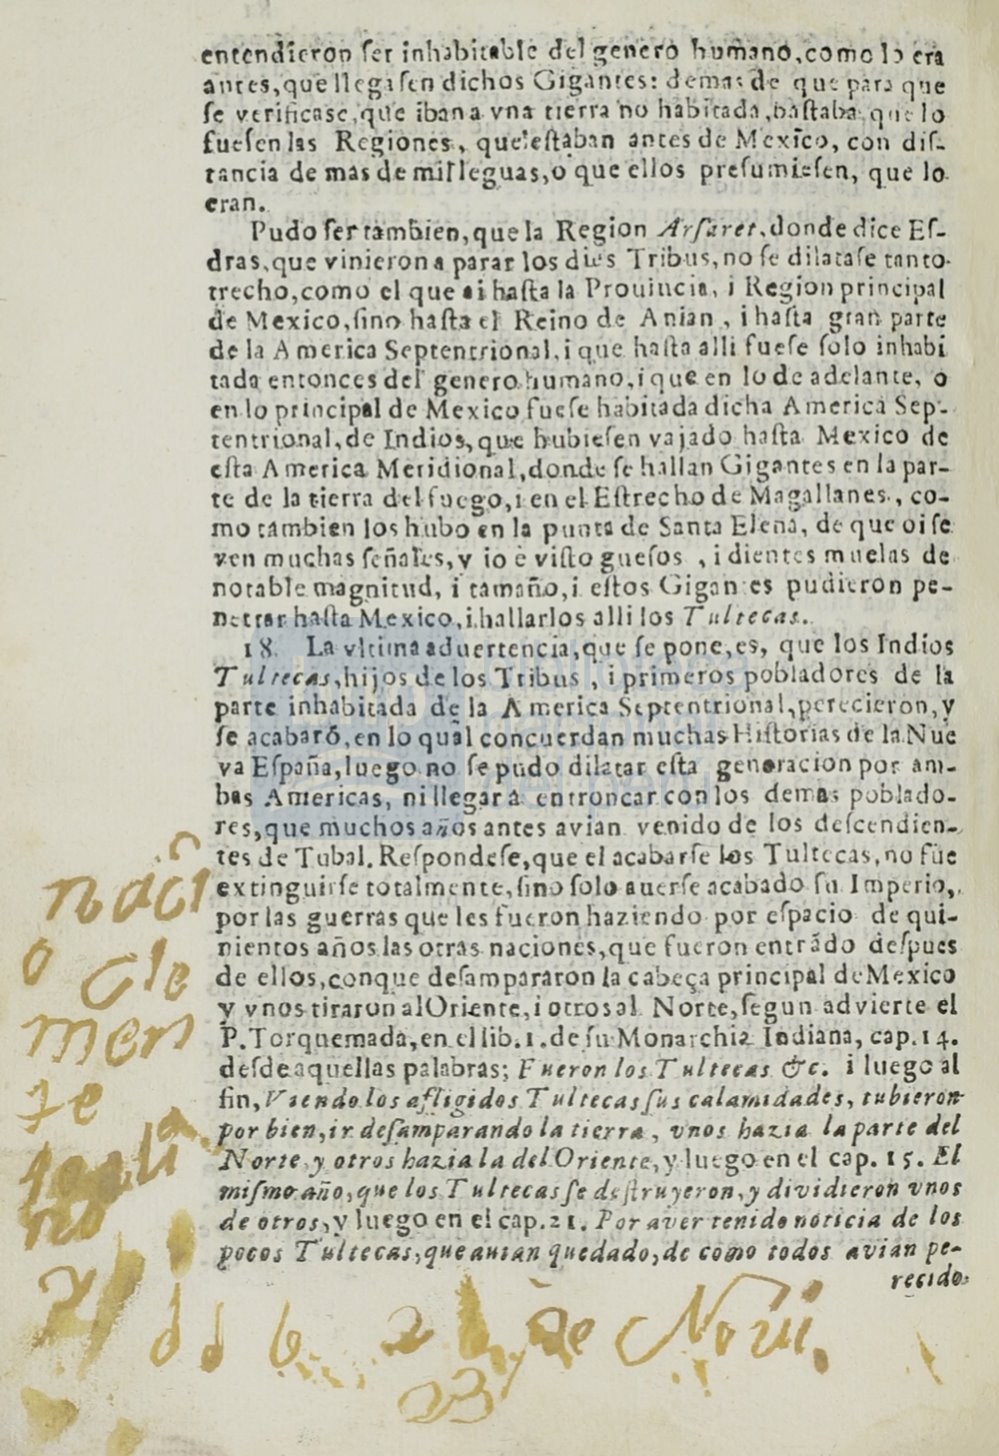 entendieron ser inhabitable del genero humano, como lo era
antes, que llegasen dichos Gigantes: demas de que para que
se verificase, que iban a vna tierra no habitada, bastaba que lo
fuesen las Regiones, que estaban antes de Mexico, con dis-
tancia de mas de mil leguas, o que ellos presumiesen, que lo
eran.
Pudo ser tambien, que la Region Arsaret, donde dice Es-
dras, que vinieron a parar los dies Tribus, no se dilatase tanto
trecho, como el que ai hasta la Prouincia, i Region principal
de Mexico, sino hasta el Reino de Anian, i hasta gran parte
de la America Septentrional, i que hasta alli fuese solo inhabi
tada entonces del genero humano, i que en lo de adelante, o
en lo principal de Mexico fuese habitada dicha America Sep-
tentrional, de Indios, que hubiesen vajado hasta Mexico de
esta America Meridional, donde se hallan Gigantes en la par-
te de la tierra del fuego, i en el Estrecho de Magallanes, co-
mo tambien los hubo en la punta de Santa Elena, de que oi se
ven muchas señales, y io è visto guesos, i dientes muelas de
notable magnitud, i tamaño, i estos Gigantes pudieron pe-
netrar hasta Mexico, i hallarlos alli los Tultecas.
18. La vltima aduertencia, que se pone, es, que los Indios
Tultecas, hijos de los Tribus, i primeros pobladores de la
parte inhabitada de la America Septentrional, perecieron, y
se acabarõ, en lo qual concuerdan muchas Historias de la Nue
va España, luego no se pudo dilatar esta generacion por am-
bas Americas, ni llegar a entroncar con los demas poblado-
res, que muchos años antes avian venido de los descendien-
tes de Tubal. Respondese, que el acabarse los Tultecas, no fue
extinguirse totalmente, sino solo auerse acabado su Imperio,
por las guerras que les fueron haziendo por espacio de qui-
nientos años las otras naciones, que fueron entrãdo despues
de ellos, conque desampararon la cabeça principal de Mexico
y vnos tiraron al Oriente, i otros al Norte, segun advierte el
P. Torquemada, en el lib. 1. de su Monarchia Indiana, cap. 14.
desde aquellas palabras; Fueron los Tultecas &c. i luego al
fin, Viendo los afligidos Tultecas sus calamidades, tubieron
por bien, ir desamparando la tierra, vnos hazia la parte del
Norte, y otros hazia la del Oriente, y luego en el cap. 15. El
mismo año, que los Tultecas se destruyeron, y dividieron vnos
de otros, y luego en el cap. 21. Por aver tenido noticia de los
pocos Tultecas, que auian quedado, de como todos avian pe-
recido
naci
o Cle
men
te